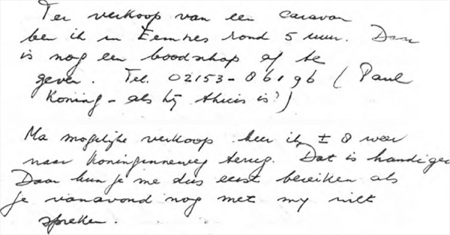 Ter verkoop van een caravan
ben ik in Eemnes rond 5 uur. Daar
is nog een boodschap af te
geven. Tel. 02153-86196 (Paul
Koning - als hij thuis is!)
Na mogelijke verkoop keer ik ± 8 uur
naar Koninginneweg terug. Dat is handiger
Daar kun je me dus eerst bereiken als
je vanavond nog met mij wilt
spreken.